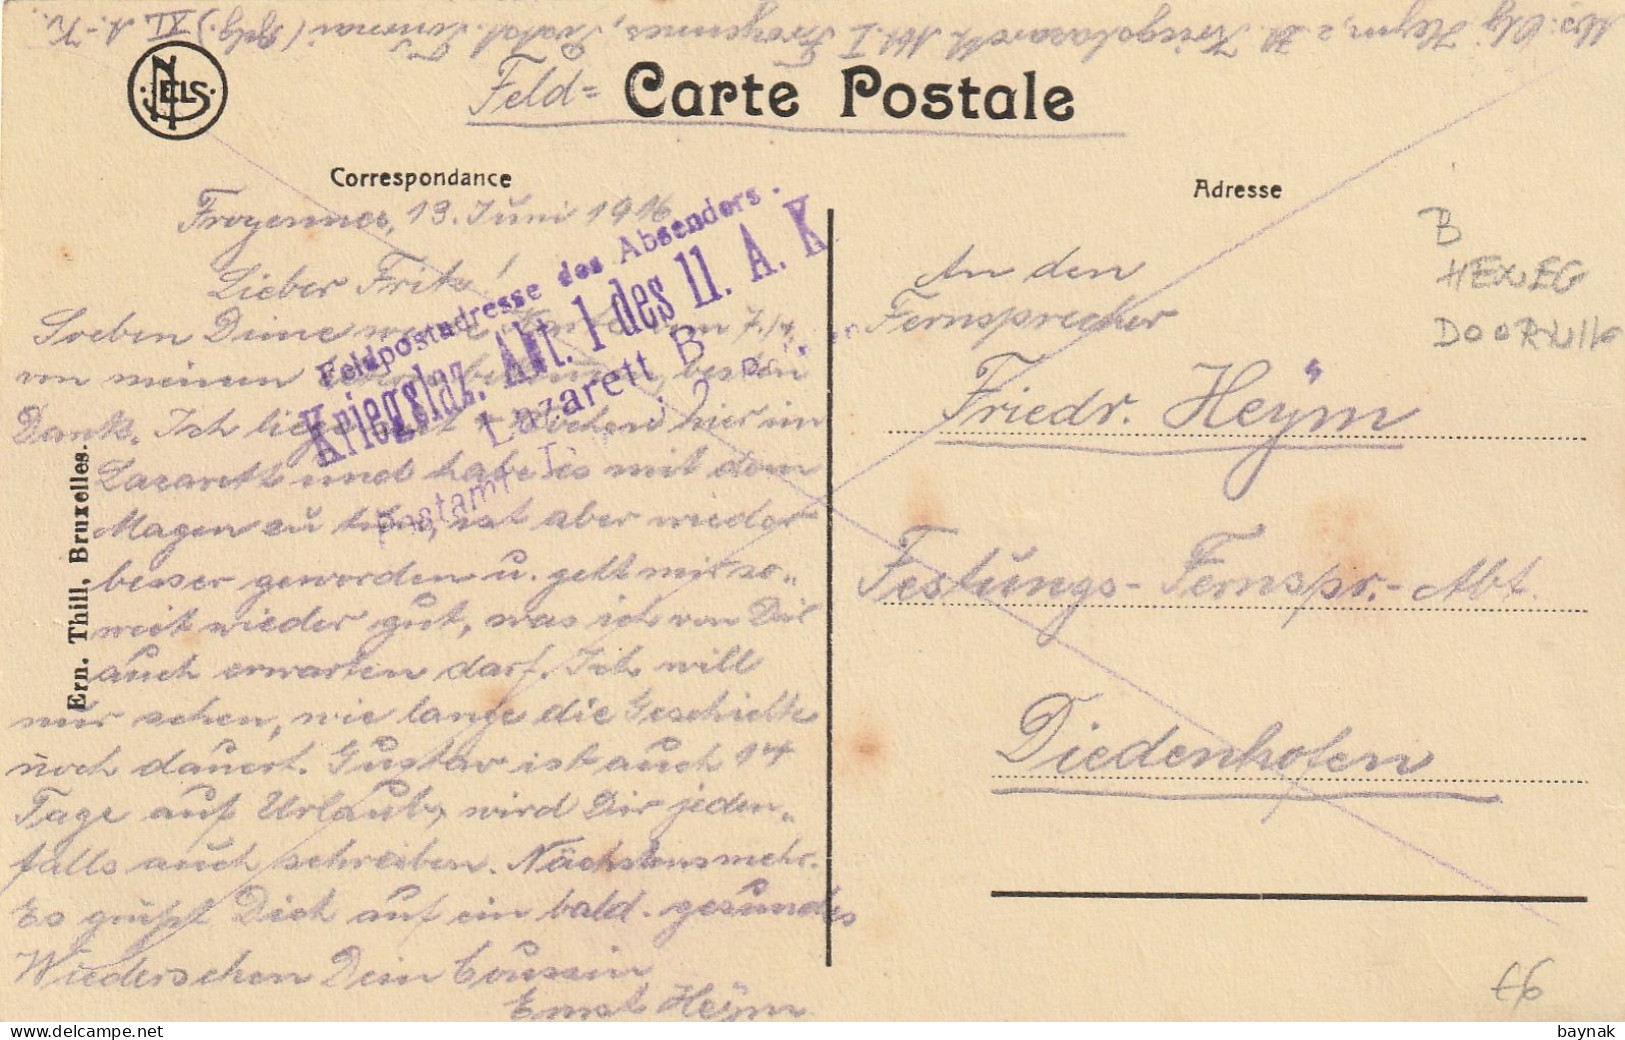 Abs.: Utlg Heym, z. Zt. Kriegslazarett Abt. I Froyennes, Portal. Tournai (Belg.) XI. A.-K.
NELS
Feld= Carte Postale
Correspondance
Froyennes, 13. Juni 1916
Lieber Fritz!
Soeben Deine werte Karte vom 7./4.
von meinen bekommen, besten
Dank. Ich liege seit 4 Wochen hier im
Lazarett und habe es mit dem
Magen zu tun, ist aber wieder
besser geworden u. geht mir so„
weit wieder gut, was ich von Dir
auch erwarten darf. Ich will
nur sehen, wie lange die Geschichte
noch dauert. Gustav ist auch 14
Tage auf Urlaub, wird Dir jeden„
falls auch schreiben. Nächstens mehr.
Es grüßt Dich auf ein bald. gesundes
Wiedersehen Dein Coussin
Ernst Heym
Feldpostadresse des Absenders.
Kriegslaz. Abt. 1 des 11. A. K
Lazarett B
Postamt I
Ern. Thill, Bruxelles.
Adresse
An den
Fernsprecher
Friedr. Heym
Festungs-Fernspr.-Abt.
Diedenhofen
B
HENEG
DOORNIK
€6
baynak